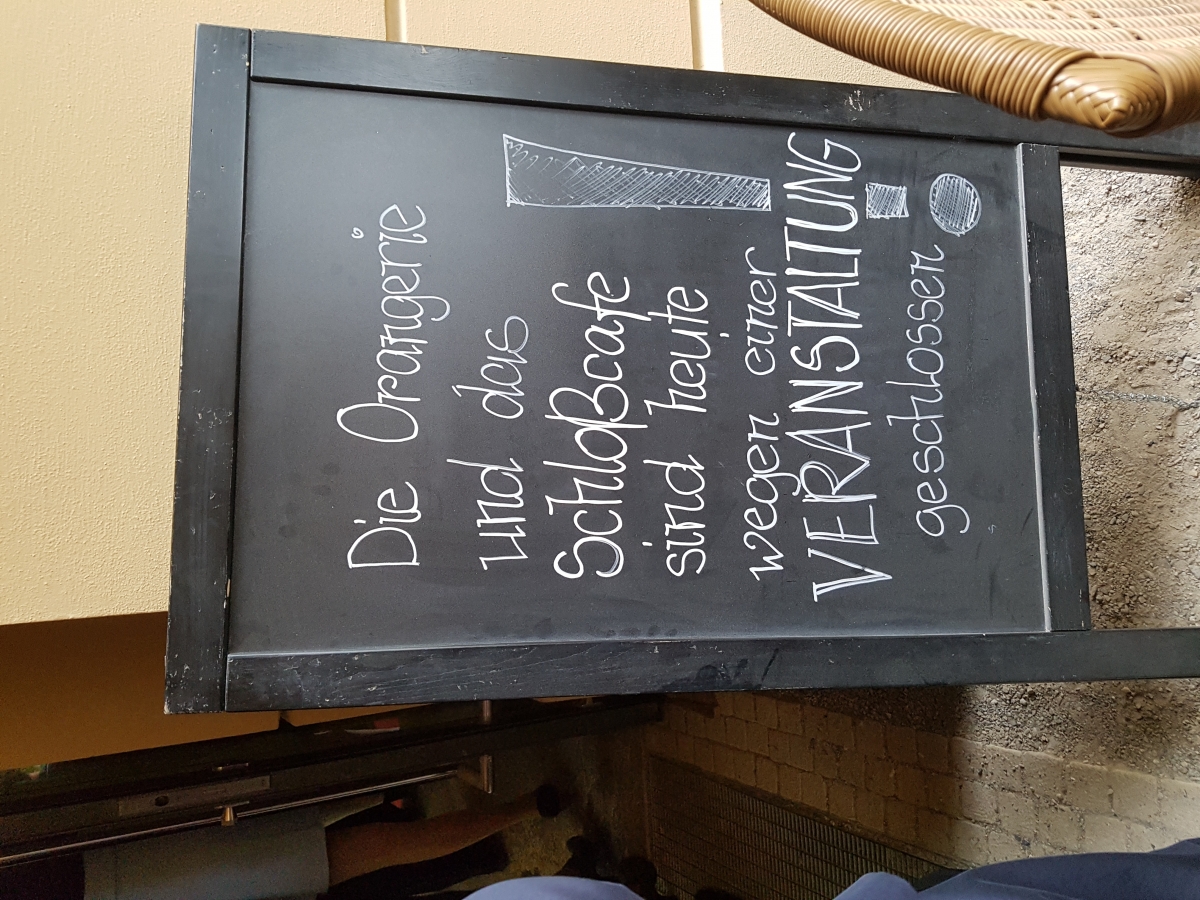 Die Orangerie
und das
Schloßcafe
sind heute
wegen einer
VERANSTALTUNG
geschlossen